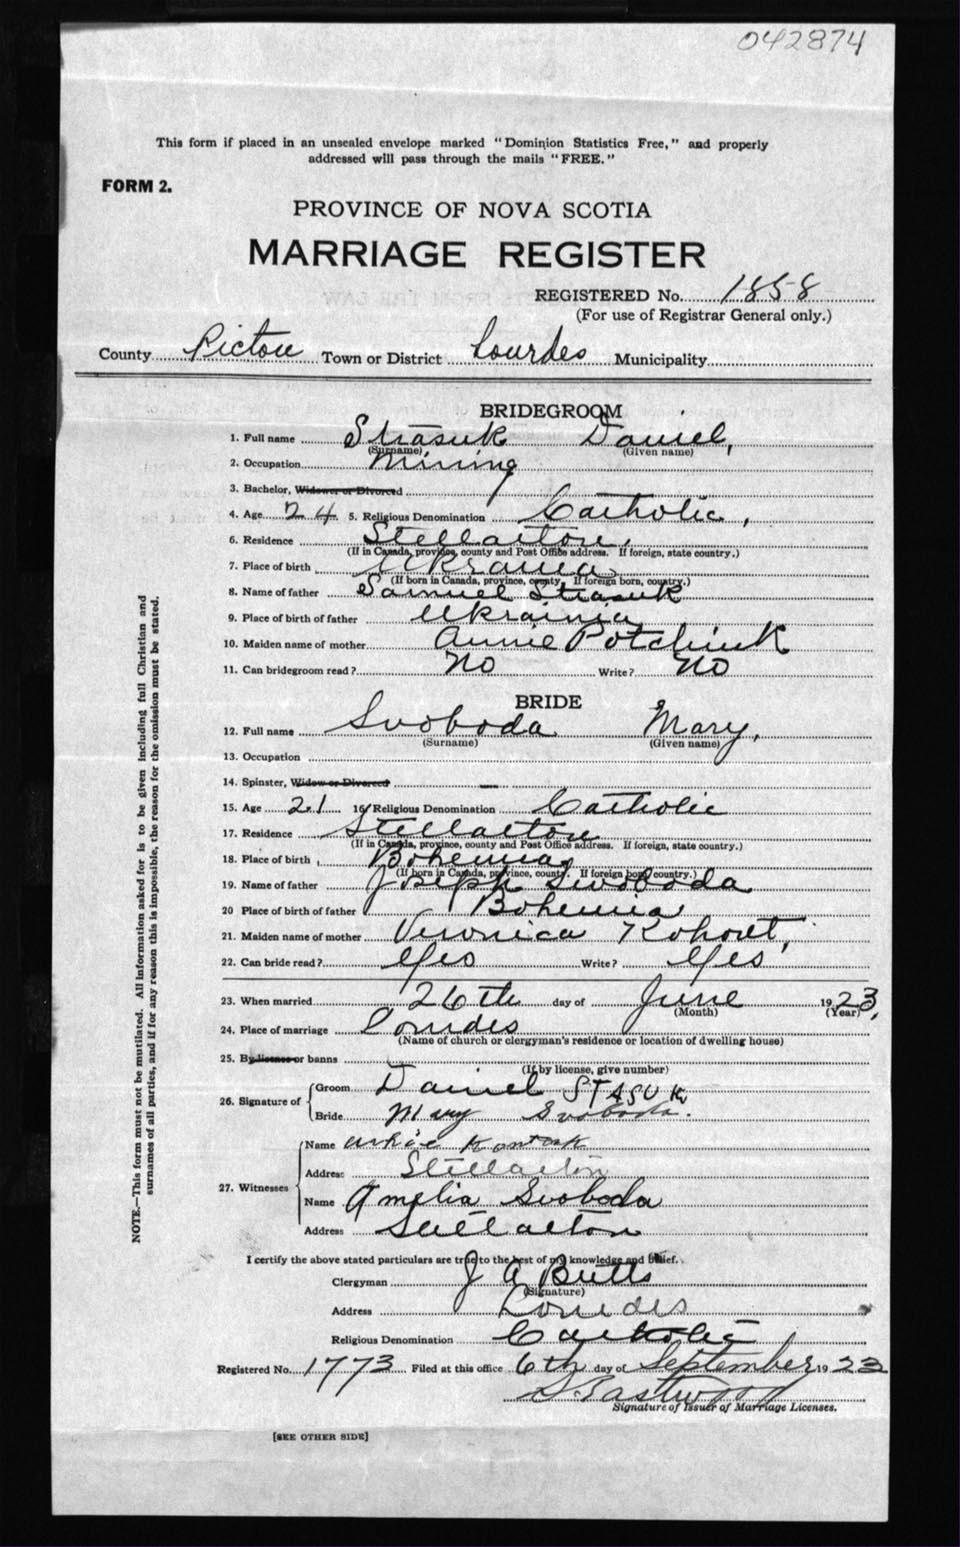 042874
This form if placed in an unsealed envelope marked "Dominion Statistics Free," and properly
addressed will pass through the mails "FREE."
FORM 2.
PROVINCE OF NOVA SCOTIA
MARRIAGE REGISTER
REGISTERED No. 1858
(For use of Registrar General only.)
County Pictou Town or District Lourdes Municipality
BRIDEGROOM
1. Full name Strasuk Daniel,
(Surname) (Given name)
2. Occupation Mining
3. Bachelor, Widower or Divorced
4. Age 24 5. Religious Denomination Catholic,
6. Residence Stellarton,
(If in Canada, province, county and Post Office address. If foreign, state country.)
7. Place of birth Ukrania
(If born in Canada, province, county. If foreign born, country.)
8. Name of father Samuel Strasuk
9. Place of birth of father Ukrainia
10. Maiden name of mother Annie Potchiuk
11. Can bridegroom read? No Write? No
BRIDE
12. Full name Svoboda Mary,
(Surname) (Given name)
13. Occupation
14. Spinster, Widow or Divorced
15. Age 21 16 Religious Denomination Catholic
17. Residence Stellarton
(If in Canada, province, county and Post Office address. If foreign, state country.)
18. Place of birth Bohemia
(If born in Canada, province, county. If foreign born, country.)
19. Name of father Joseph Swoboda
20 Place of birth of father Bohemia
21. Maiden name of mother Veronica Kohout,
22. Can bride read? Yes Write? Yes
23. When married 26th day of June 1923,
(Month) (Year)
24. Place of marriage Lourdes
(Name of church or clergyman's residence or location of dwelling house)
25. By license or banns
(If by license, give number)
26. Signature of
Groom Daniel STASUK
Bride Mary Svoboda.
27. Witnesses
Name
Address Stellarton
Name Amelia Svoboda
Address Stellarton
I certify the above stated particulars are true to the best of my knowledge and belief.
Clergyman J A Butts
(Signature)
Address Lourdes
Religious Denomination Catholic
Registered No. 1773 Filed at this office 6th day of September 1923
S. Eastwood
Signature of Issuer of Marriage Licenses.
[SEE OTHER SIDE]
NOTE.—This form must not be mutilated. All information asked for is to be given including full Christian and
surnames of all parties, and if for any reason this is impossible, the reason for the omission must be stated.